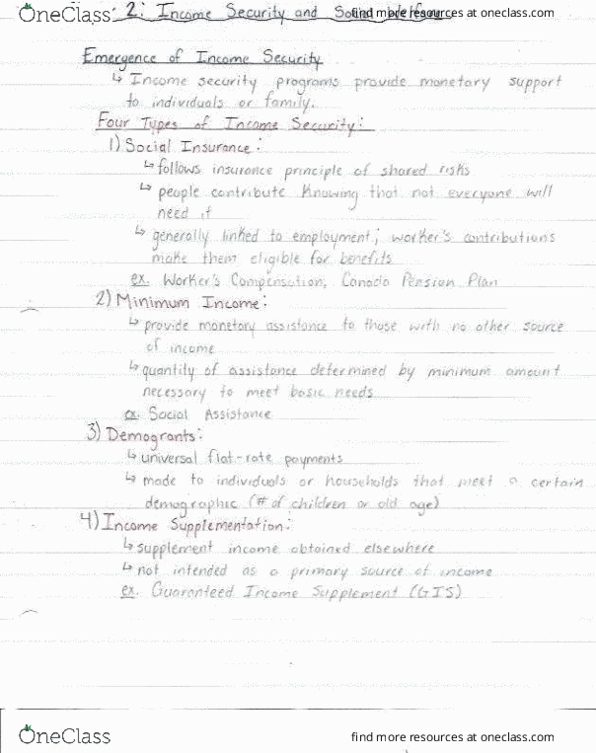 OneClass
2: Income Security and Social Welfare
find more resources at oneclass.com
Emergence of Income Security
↳ Income security programs provide monetary support
to individuals or family.
Four Types of Income Security:
1) Social Insurance:
↳ follows insurance principle of shared risks
↳ people contribute knowing that not everyone will
need it
↳ generally linked to employment; worker's contributions
make them eligible for benefits
ex. Worker's Compensation, Canada Pension Plan
2) Minimum Income:
↳ provide monetary assistance to those with no other source
of income
↳ quantity of assistance determined by minimum amount
necessary to meet basic needs
ex. Social Assistance
3) Demogrants:
↳ universal flat-rate payments
↳ made to individuals or households that meet a certain
demographic (# of children or old age)
4) Income Supplementation:
↳ supplement income obtained elsewhere
↳ not intended as a primary source of income
ex. Guaranteed Income Supplement (GIS)
OneClass
find more resources at oneclass.com